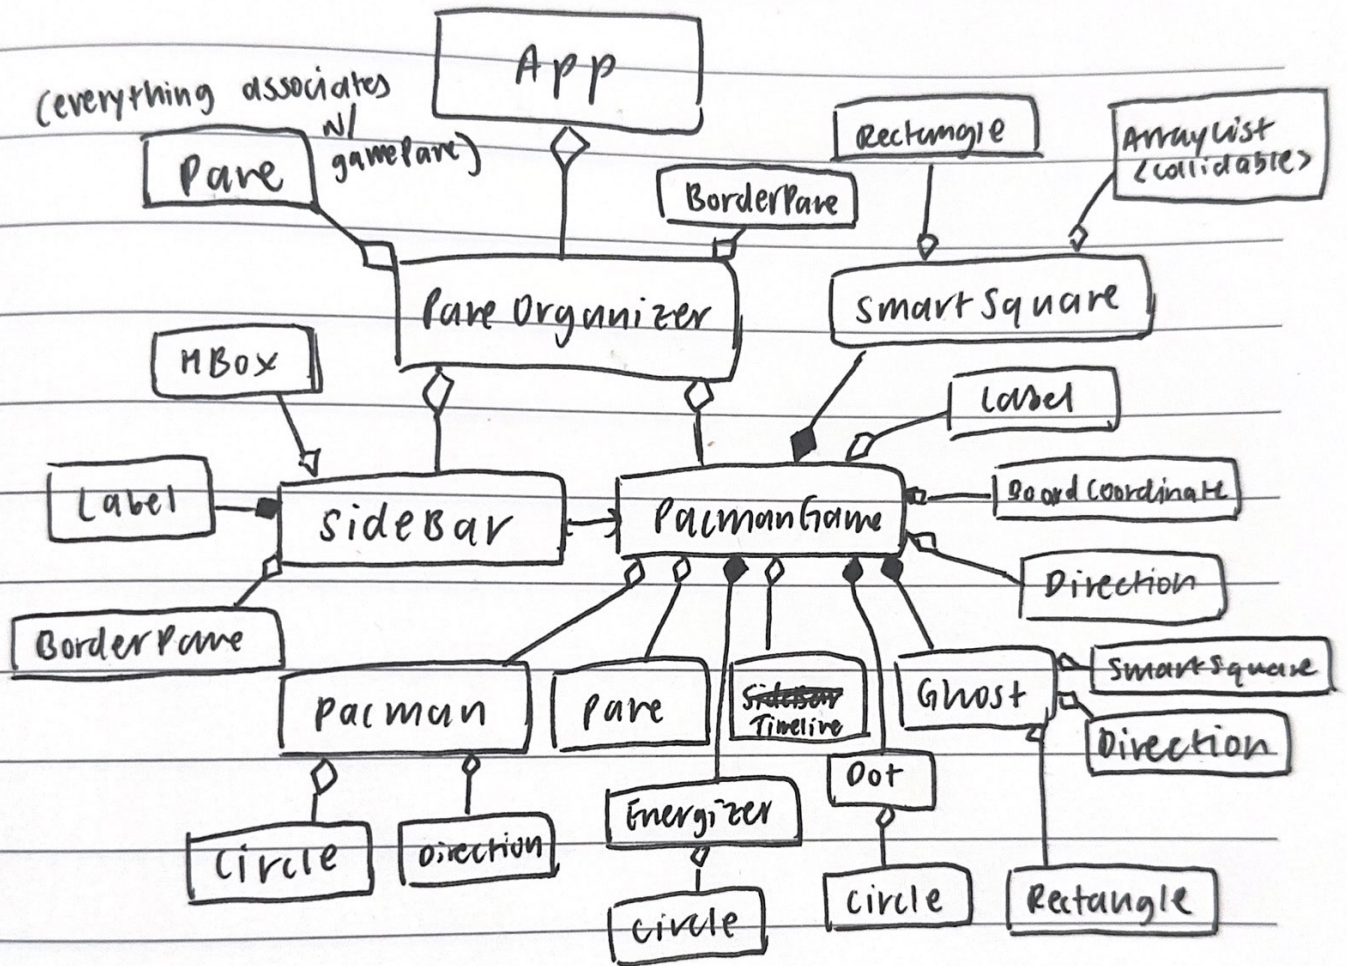 App
(everything associates
w/
gamePane)
Pane
Rectangle
ArrayList
<collidable>
BorderPane
PaneOrganizer
SmartSquare
HBox
Label
Label
SideBar
PacmanGame
BoardCoordinate
Direction
BorderPane
Pacman
Pane
SideBar
Timeline
Ghost
SmartSquare
Direction
Energizer
Dot
Circle
Direction
Circle
Circle
Rectangle